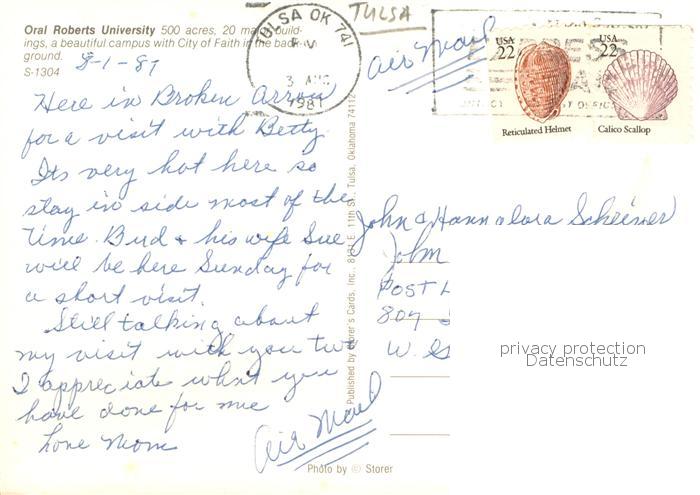 Oral Roberts University 500 acres, 20 major build-
ings, a beautiful campus with City of Faith in the back-
ground.
S-1304
8-1-87
Here in Broken Arrow
for a visit with Betty.
Its very hot here so
stay in side most of the
time. Bud + his wife Sue
will be here Sunday for
a short visit.
Still talking about
my visit with you two
I appreciate what you
have done for me
Love Mom
Published by Storer's Cards, Inc., 11th St., Tulsa, Oklahoma 74112
TULSA OK 741
PM
3 AUG
1987
TULSA
Air Mail
USA
22
Reticulated Helmet
USA
22
Calico Scallop
John & Hannalora Scheiner
John
POST
807
W. G
privacy protection
Datenschutz
Air Mail
Photo by © Storer